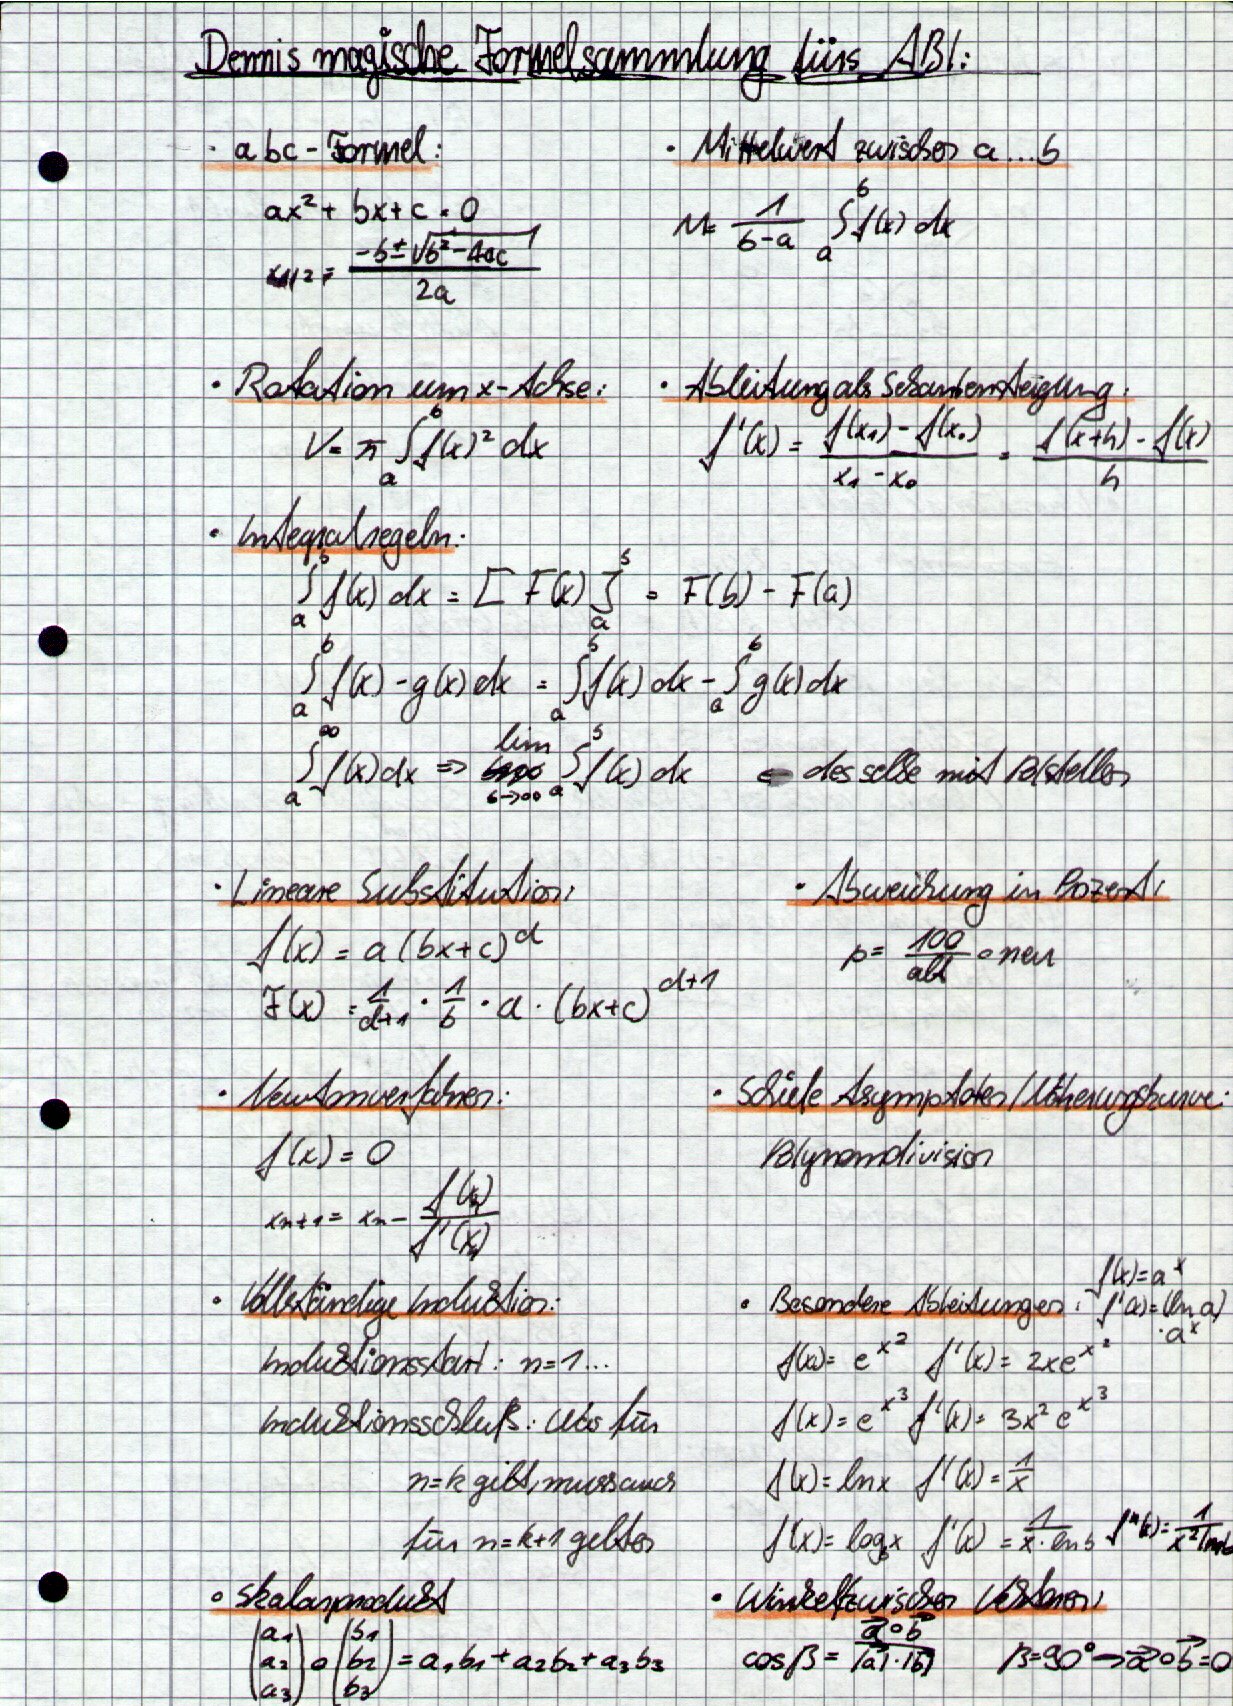 Dennis magische Formelsammlung fürs ABI:
· abc-Formel:
ax² + bx + c = 0
x1/2 = (-b ± √(b² - 4ac)) / 2a
· Mittelwert zwischen a...b
M = 1/(b-a) ∫ₐᵇ f(x) dx
· Rotation um x-Achse:
V = π ∫ₐᵇ f(x)² dx
· Ableitung als Sekantensteigung:
f'(x) = (f(x₁) - f(x₀)) / (x₁ - x₀) = (f(x+h) - f(x)) / h
· Integralregeln:
∫ₐᵇ f(x) dx = [F(x)]ₐᵇ = F(b) - F(a)
∫ₐᵇ f(x) - g(x) dx = ∫ₐᵇ f(x) dx - ∫ₐᵇ g(x) dx
∫ₐ^∞ f(x) dx => lim b→∞ ∫ₐᵇ f(x) dx ← desselbe mit Polstellen
· Lineare Substitution:
f(x) = a (bx+c)^d
F(x) = 1/(d+1) · 1/b · a · (bx+c)^(d+1)
· Abweichung in Prozent:
p = 100/alt · neu
· Newtonverfahren:
f(x) = 0
xn+1 = xn - f(xn) / f'(xn)
· Schiefe Asymptoten / Näherungskurve:
Polynomdivision
· Vollständige Induktion:
Induktionsstart: n=1...
Induktionsschluß: Was für
n=k gilt, muss auch
für n=k+1 gelten
· Besondere Ableitungen: f(x) = a^x
f'(x) = (ln a)
· a^x
f(x) = e^(x²) f'(x) = 2xe^(x²)
f(x) = e^(x³) f'(x) = 3x² e^(x³)
f(x) = ln x f'(x) = 1/x
f(x) = log_b x f'(x) = 1/(x · ln b) f"(x) = 1/(x² ln b)
· Skalarprodukt
(a₁ a₂ a₃) ∘ (b₁ b₂ b₃) = a₁b₁ + a₂b₂ + a₃b₃
· Winkel zwischen Vektoren:
cos β = (a⃗ ∘ b⃗) / (|a⃗| · |b⃗|) β = 90° → a⃗ ∘ b⃗ = 0